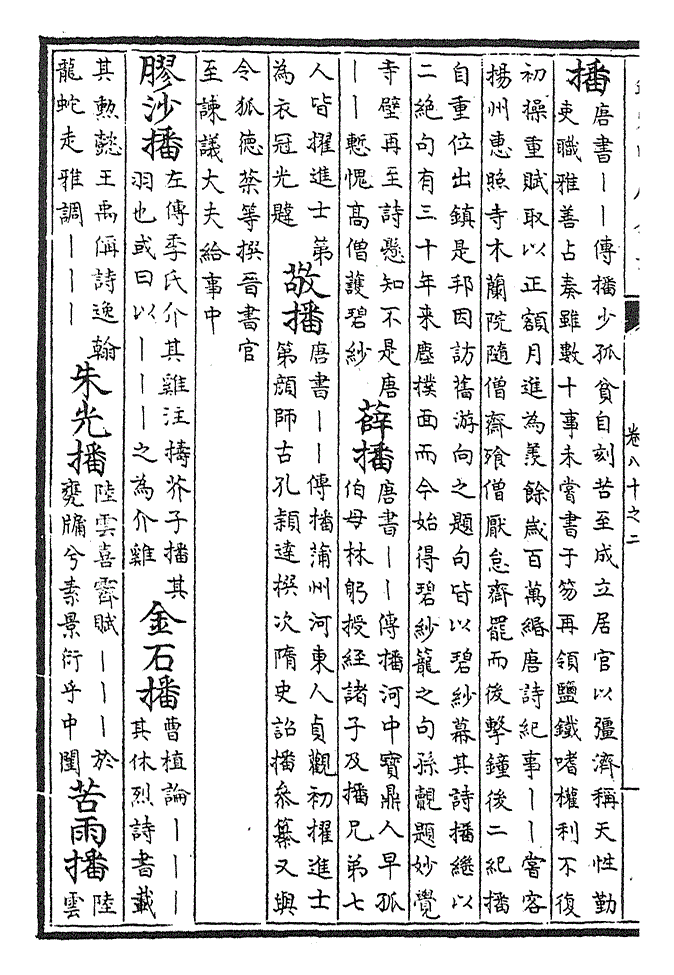 卷八十之二
播
唐書丨丨傳播少孤貧自刻苦至成立居官以彊濟稱天性勤
吏職雅善占奏雖數十事未嘗書于笏再領鹽鐵嗜權利不復
初操重賦取以正額月進為羨餘歲百萬緡唐詩紀事丨丨嘗客
揚州惠照寺木蘭院隨僧齋飱僧厭怠齊罷而後擊鐘後二紀播
自重位出鎮是邦因訪舊游向之題句皆以碧紗幕其詩播繼以
二絕句有三十年来塵撲面而今始得碧紗籠之句孫覿題妙覺
寺壁再至詩懸知不是唐
丨丨慙愧高僧護碧紗
薛播
唐書丨丨傳播河中寶鼎人早孤
伯母林躬授經諸子及播兄弟七
人皆擢進士第
為衣冠光韙
敬播
唐書丨丨傳播蒲州河東人貞觀初擢進士
第顔師古孔穎達撰次隋史詔播叅纂又與
令狐德棻等撰晉書官
至諫議大夫給事中
膠沙播
左傳季氏介其雞注擣芥子播其
羽也或曰以丨丨丨之為介雞
金石播
曹植論丨丨丨
其休烈詩書載
其勲懿王禹偁詩逸翰
龍蛇走雅調丨丨丨
朱光播
陸雲喜霽賦丨丨丨於
甍牖兮素景衍乎中閨
苦雨播
陸
雲